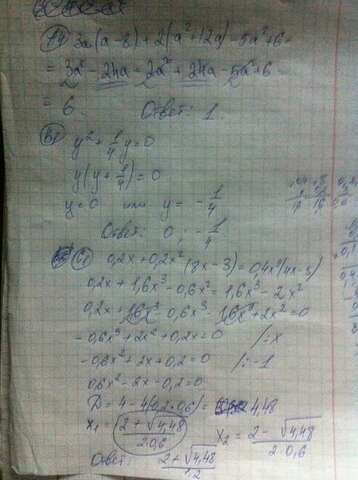 A4 3a(a-8)+2(a²+12a)-5a²+6=
= 3a²-24a+2a²+24a-5a²+6
= 6. Ответ: 1.
B1 y²+1/4y=0
y(y+1/4)=0
y=0 или y=-1/4
Ответ: 0; -1/4
C1 0,2x+0,2x²(8x-3)=0,4x²(4x-5)
0,2x+1,6x³-0,6x²=1,6x³-2x²
-0,6x³+2x²+0,2x=0 /:x
-0,6x²+2x+0,2=0 /:-1
0,6x²-2x-0,2=0
D=4-4(0,2·0,6)= 4,48
x₁=(2+√4,48)/(2·0,6) x₂=(2-√4,48)/(2·0,6)
Ответ: (2+√4,48)/1,2